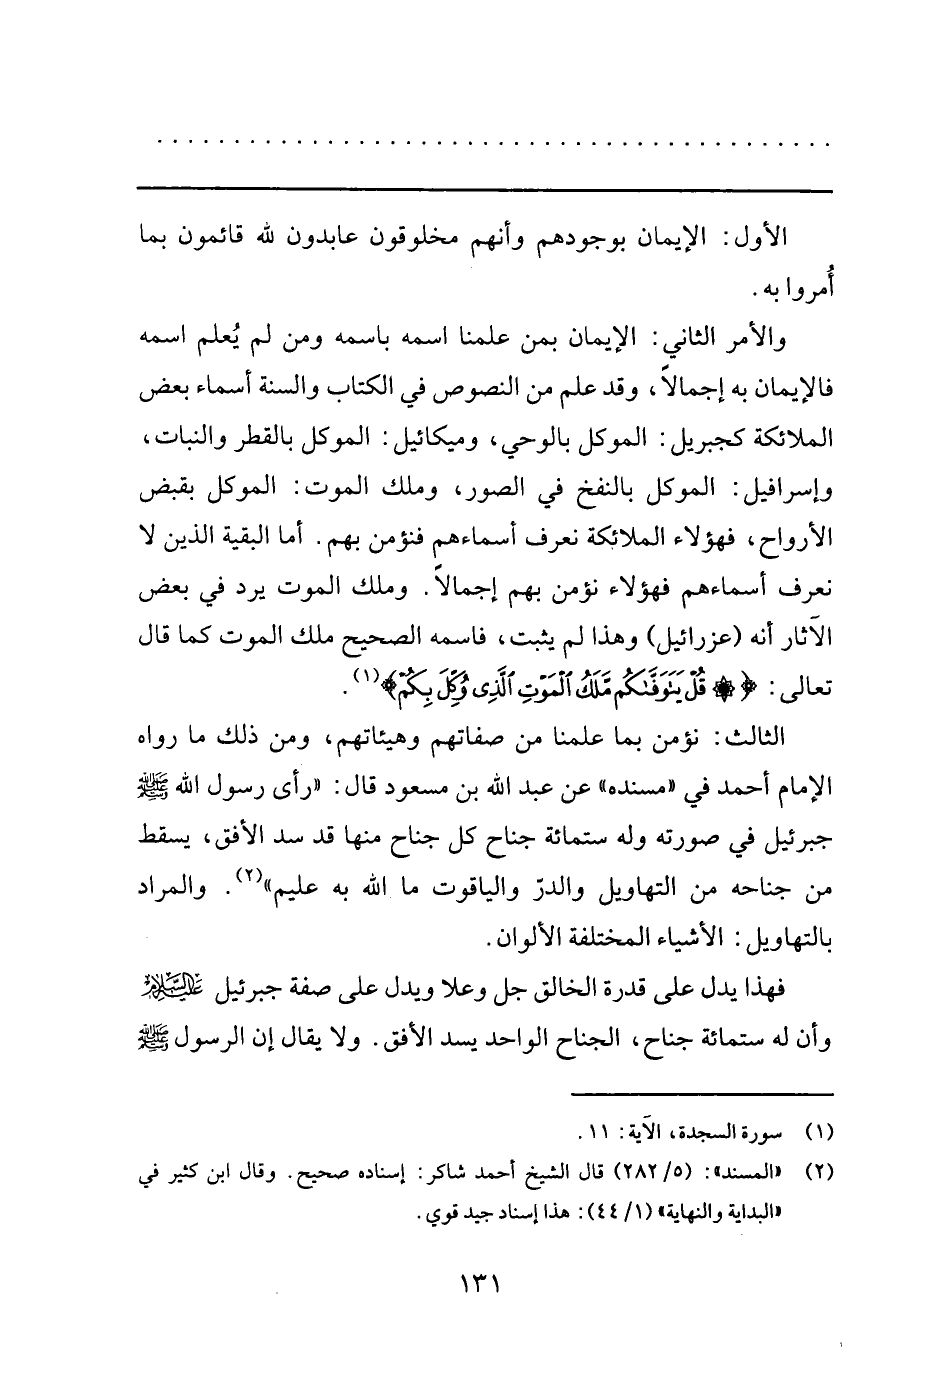 الأول: الإيمان بوجودهم وأنهم مخلوقون عابدون لله قائمون بما
أُمروا به.
والأمر الثاني: الإيمان بمن علمنا اسمه باسمه ومن لم يُعلم اسمه
فالإيمان به إجمالاً، وقد علم من النصوص في الكتاب والسنة أسماء بعض
الملائكة كجبريل: الموكل بالوحي، وميكائيل: الموكل بالقطر والنبات،
وإسرافيل: الموكل بالنفخ في الصور، وملك الموت: الموكل بقبض
الأرواح، فهؤلاء الملائكة نعرف أسماءهم فنؤمن بهم. أما البقية الذين لا
نعرف أسماءهم فهؤلاء نؤمن بهم إجمالاً. وملك الموت يرد في بعض
الآثار أنه (عزرائيل) وهذا لم يثبت، فاسمه الصحيح ملك الموت كما قال
تعالى: ﴿ ۞ قُلْ يَتَوَفَّىٰكُم مَّلَكُ ٱلْمَوْتِ ٱلَّذِى وُكِّلَ بِكُمْ﴾(١).
الثالث: نؤمن بما علمنا من صفاتهم وهيئاتهم، ومن ذلك ما رواه
الإمام أحمد في «مسنده» عن عبد الله بن مسعود قال: «رأى رسول الله ﷺ
جبرئيل في صورته وله ستمائة جناح كل جناح منها قد سد الأفق، يسقط
من جناحه من التهاويل والدرّ والياقوت ما الله به عليم»(٢). والمراد
بالتهاويل: الأشياء المختلفة الألوان.
فهذا يدل على قدرة الخالق جل وعلا ويدل على صفة جبرئيل عليه السلام
وأن له ستمائة جناح، الجناح الواحد يسد الأفق. ولا يقال إن الرسول ﷺ
(١) سورة السجدة، الآية: ١١.
(٢) «المسند»: (٥/ ٢٨٢) قال الشيخ أحمد شاكر: إسناده صحيح. وقال ابن كثير في
«البداية والنهاية» (١/ ٤٤): هذا إسناد جيد قوي.
١٣١